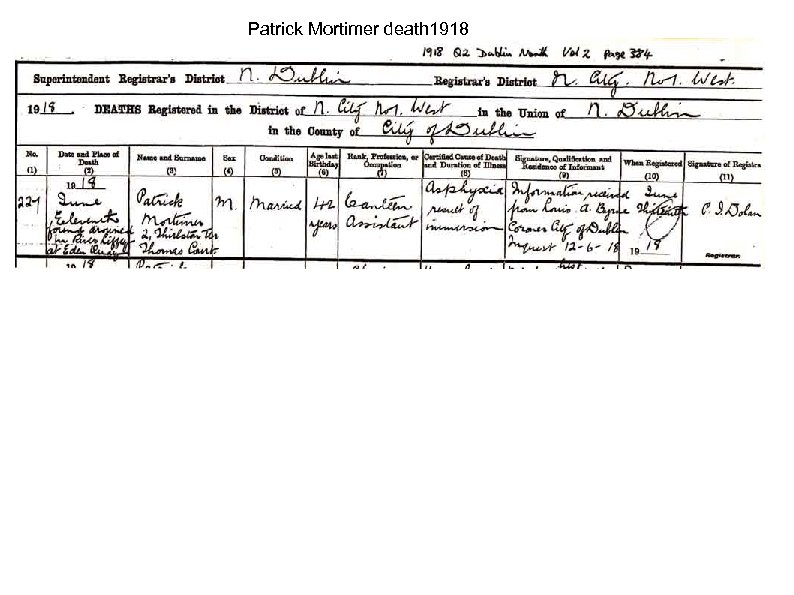 Patrick Mortimer death1918
1918 Q2 Dublin North Vol 2 Page 384
Superintendent Registrar's District N. Dublin Registrar's District N. City. No1. West.
1918. DEATHS Registered in the District of N. City No1. West in the Union of N. Dublin
in the County of City of Dublin
No. (1)
Date and Place of Death (2)
Name and Surname (3)
Sex (4)
Condition (5)
Age last Birthday (6)
Rank, Profession, or Occupation (7)
Certified Cause of Death and Duration of Illness (8)
Signature, Qualification and Residence of Informant (9)
When Registered (10)
Signature of Registrar (11)
227
1918
June
Eleventh
found drowned
in River Liffey
at Eden Quay
Patrick
Mortimer
2, Ter
Thomas Court
M.
Married
42
years
Canteen
Assistant
Asphyxia
result of
immersion
Information received
from Louis. A. Byrne
Coroner City of Dublin
Inquest 12-6-18
June
1918
C. J. Dolan
Registrar.
1918